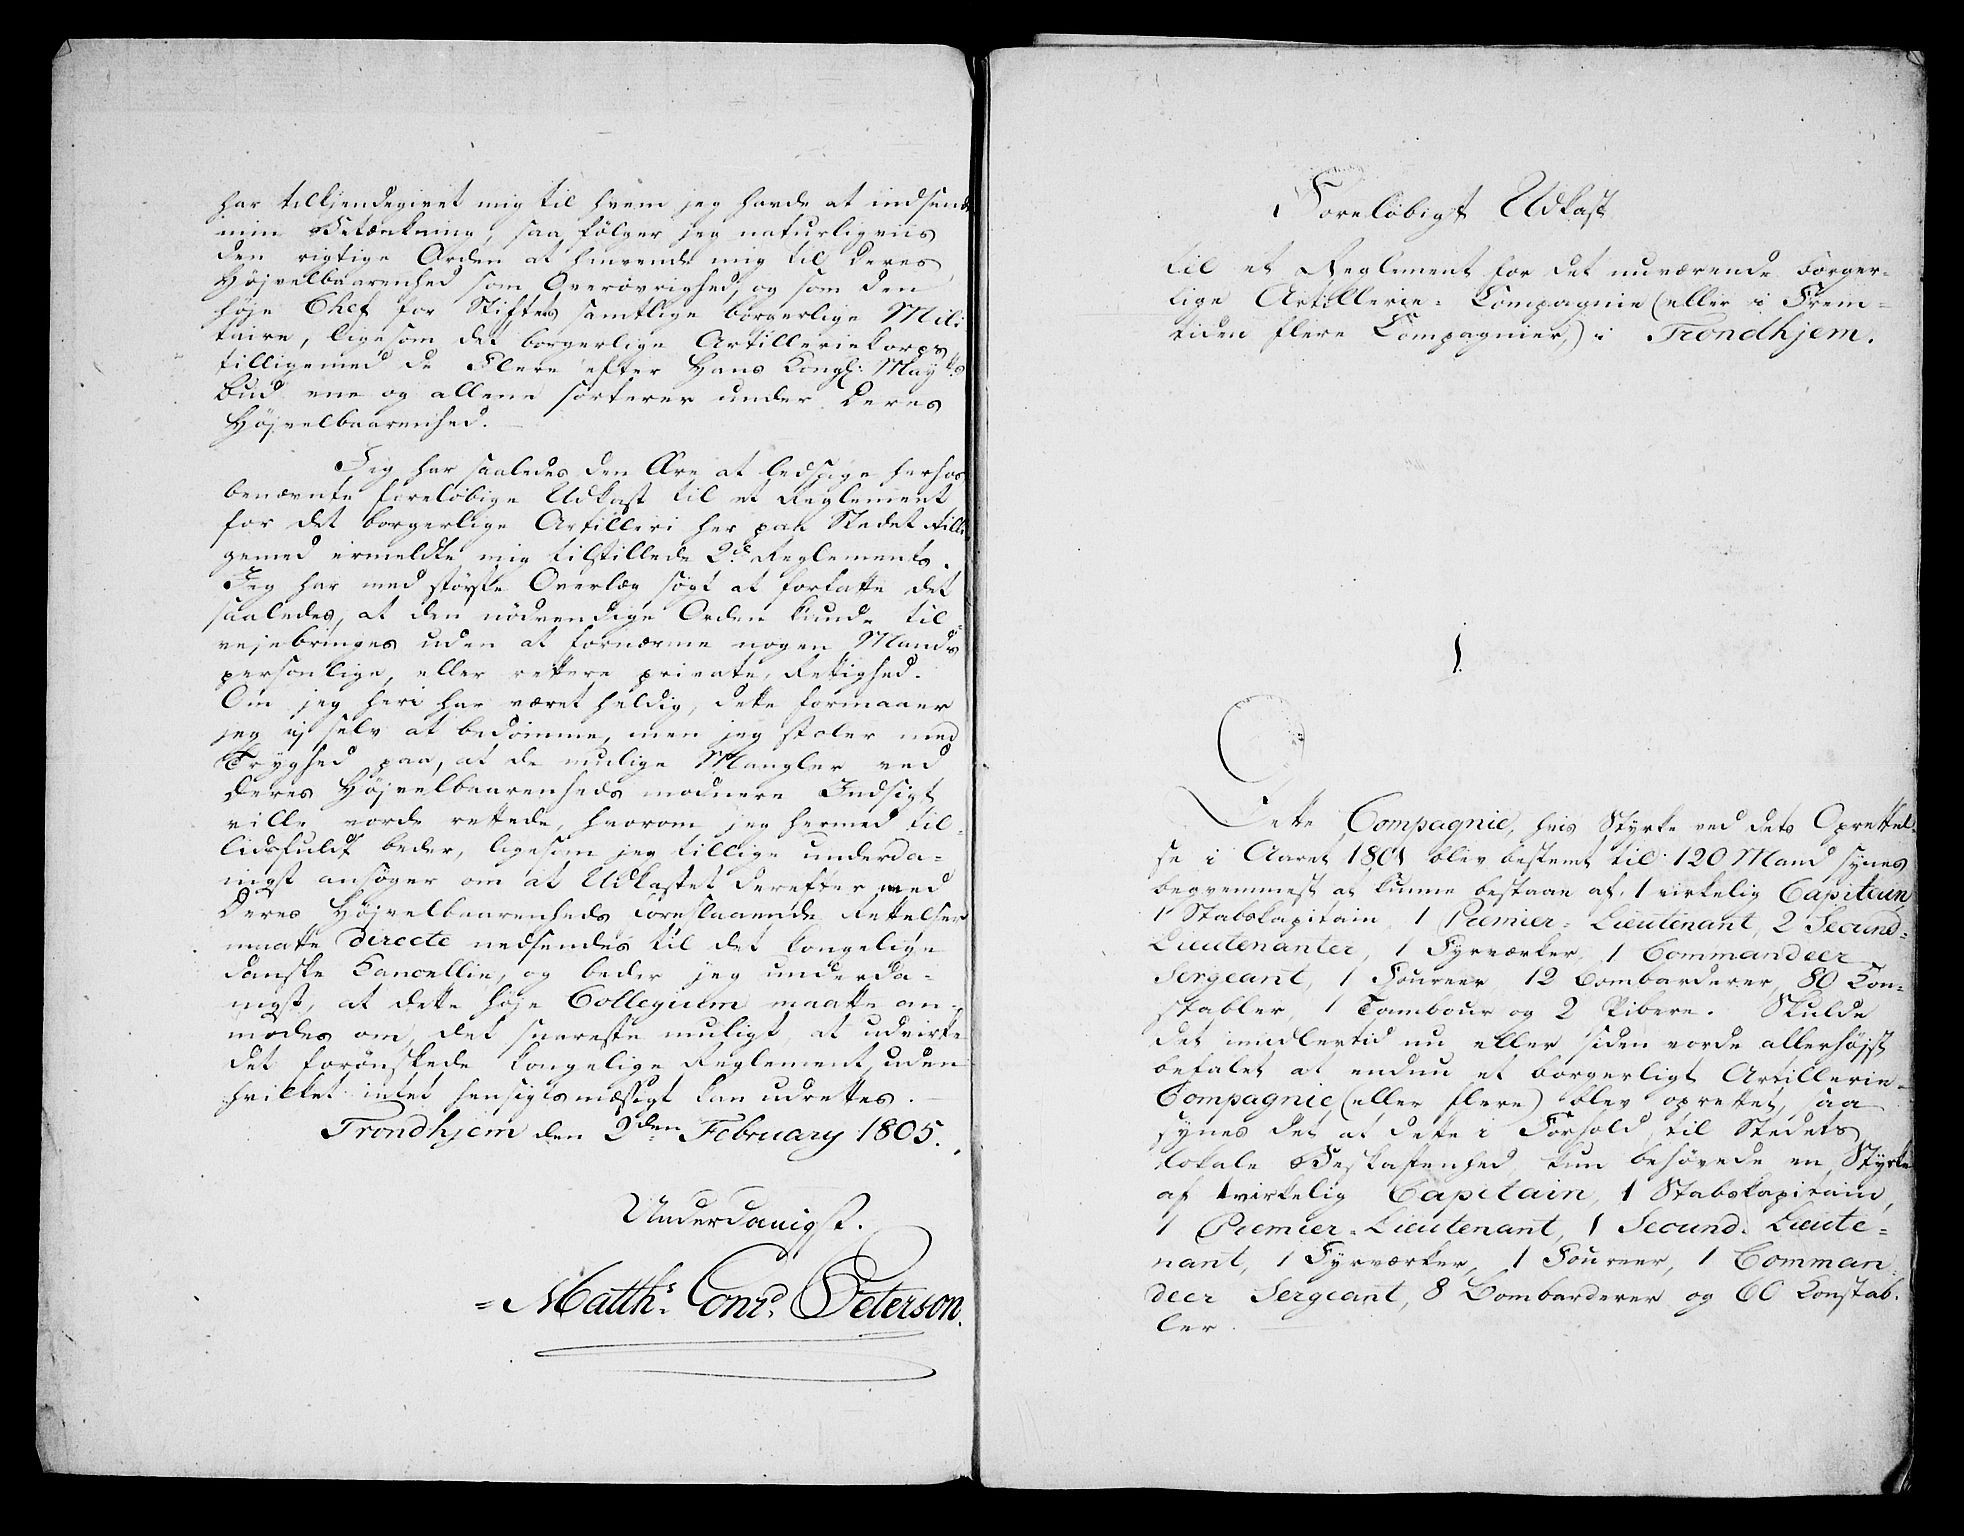 har tilkjendegivet mig til hvem jeg havde at indsende
min Betænkning, saa følger jeg naturligviis
den rigtige Orden at henvende mig til Deres
Højvelbaarenhed som Overøvrighed, og som den
høje Chef for Stiftets samtlige borgerlige Mili-
taire, ligesom det borgerlige Artilleriekorps
tilligemed de Flere efter Hans Kongl: May.ts
Bud ene og allene sorterer under Deres
Højvelbaarenhed.
Jeg har saaledes den Ære at ledsage herhos
benævnte foreløbige Udkast til et Reglement
for det borgerlige Artilleri her paa Stedet tilli-
gemed ermeldte mig tilstillede 2de Reglements.
Jeg har med største Overlæg søgt at forfatte det
saaledes, at den nödvendige Orden kunde til-
vejebringes uden at fornærme nogen Mands
personlige, eller rettere private, Rettighed.
Om jeg heri har været heldig, dette formaaer
jeg ej selv at bedömme, men jeg stoler med
Tryghed paa, at de mulige Mangler ved
Deres Højvelbaarenheds modnere Indsigt
ville vorde rettede, hvorom jeg hermed til-
lidsfuldt beder, ligesom jeg tillige underda-
nigst ansøger om at Udkastet derefter med
Deres Højvelbaarenheds foreslaaende Rettelser
maatte directe nedsendes til det kongelige
danske Kancellie, og beder jeg underda-
nigst, at dette høje Collegium maatte an-
modes om, det snareste muligt, at udvirke
det forönskede kongelige Reglement, uden
hvilket intet hensigtsmæssigt kan udrettes.
Trondhjem den 2den February 1805.
Underdanigst.
= Matths. Conrd. Peterson.
Foreløbigt Udkast
til et Reglement for det nuværende borger-
lige Artillerie-Compagnie (eller i Frem-
tiden flere Compagnier,) i Trondhjem.
1.
Dette Compagnie, hvis Styrke ved dets Oprettel-
se i Aaret 1801 blev bestemt til 120 Mand synes
beqvemmest at kunne bestaae af 1 virkelig Capitain,
1 Stabskapitain, 1 Premier-Lieutenant, 2 Secund-
Lieutenanter, 1 Fyrværker, 1 Commandeer
Sergeant, 1 Foureer, 12 Bombarderer, 80 Kon-
stabler, 1 Tambour og 2 Pibere. Skulde
det imidlertid nu eller siden vorde allerhøjst
befalet at endnu et borgerligt Artillerie-
Compagnie (eller flere) blev oprettet, saa
synes det at dette i Forhold til Stedets
lokale Beskaffenhed kun behövede en Styrke
af 1 virkelig Capitain, 1 Stabskapitain,
1 Premier-Lieutenant, 1 Secund-Lieute-
nant, 1 Fyrværker, 1 Foureer, 1 Comman-
deer Sergeant, 8 Bombarderer og 60 Konstab-
ler.